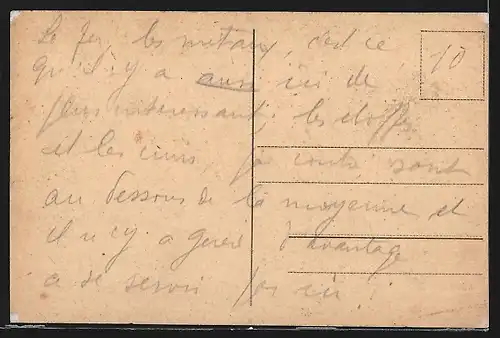 Le fer, les métaux, c'est ce
qu'il y a aussi ici de
plus intéressant, les étoffes
et les cuirs, par contre sont
au dessous de la moyenne et
il n'y a guère d'avantage
à se servir par ici !
10